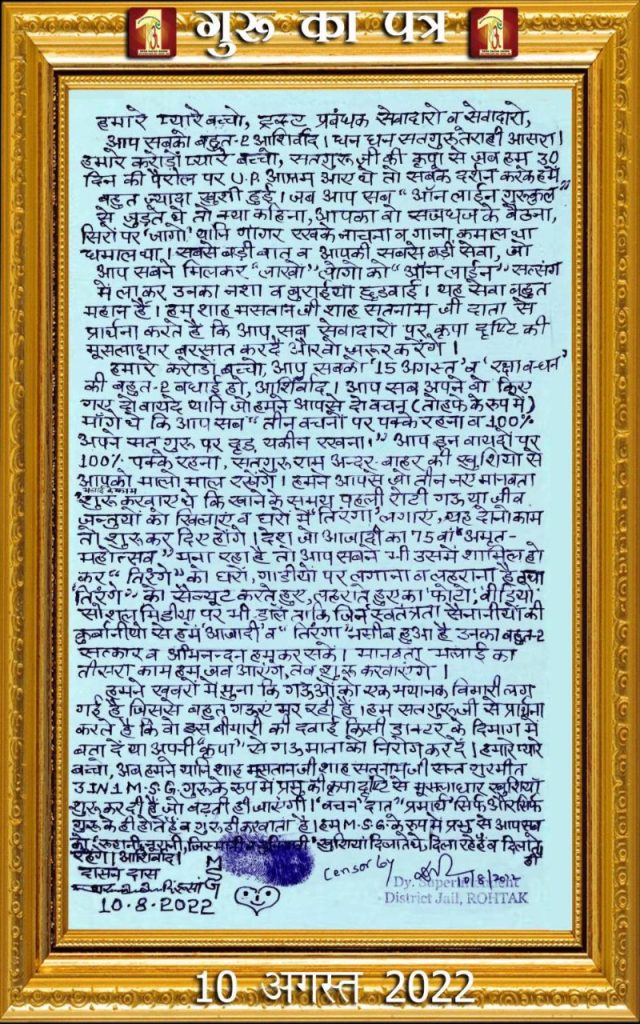 गुरू का पत्र
हमारे प्यारे बच्चो, ट्रस्ट प्रबंधक सेवादारो व सेवादारो,
आप सबको बहुत-2 आशिर्वाद। धन धन सतगुरू तेरा ही आसरा।
हमारे करोड़ों प्यारे बच्चो, सतगुरू जी की कृपा से जब हम 30
दिन की पैरोल पर U.P. आश्रम आए थे तो सबके दर्शन करके हमे
बहुत ज्यादा खुशी हुई। जब आप सब "ऑन लाईन गुरूकुल"
से जुड़ते थे तो क्या कहिना, आपका वो सजधज के बैठना,
सिरों पर 'जागो' यानि गागर रखके नाचना व गाना कमाल था
धमाल था। सबसे बड़ी बात व आपकी सबसे बड़ी सेवा, जो
आप सबने मिलकर "लाखों" लोगो को "ऑन लाईन" सत्संग
में ला कर उनका नशा व बुराईयां छुड़वाई। यह सेवा बहुत
महान है। हम शाह मसतान जी शाह सतनाम जी दाता से
प्रार्थना करते है कि आप सब सेवादारो पर कृपा दृष्टि की
मूसलाधार बरसात कर दें और वो ज़रूर करेंगे।
हमारे करोड़ों बच्चो, आप सबको '15 अगस्त' व 'रक्षा बन्धन'
की बहुत-2 बधाई हो, आशिर्वाद। आप सब अपने वो किए
गए दो वायदे यानि जो हमने आपसे दो वचन (तोहफे के रूप में)
मांगे थे कि आप सब "तीन वचनों पर पक्के रहना व 100%
अपने सतगुरू पर दृढ़ यकीन रखना।" आप इन वायदों पर
100% पक्के रहना, सतगुरू राम अन्दर बाहर की खुशियों से
आपको मालो माल रखेंगे। हमने आपसे जो तीन नए मानवता
भलाई के काम
शुरू करवाए थे कि खाने के समय पहली रोटी गऊ या जीव
जन्तुओं को खिलाएं व घरों में 'तिरंगा' लगाएं, यह दोनो काम
तो शुरू कर दिए होंगे। देश जो आजादी का 75 वां "अमृत-
महोत्सव" मना रहा है तो आप सबने भी उसमें शामिल हो
कर "तिरंगे" को घरों, गाड़ीयों पर लगाना व लहराना है तथा
"तिरंगे" को सेल्यूट करते हुए, लहराते हुए का फोटो, वीडियो
सोशल मिडीया पर भी डालें ताकि जिन स्वतंत्रता सैनानीयों की
कुर्बानीयों से हमें 'आजादी' व "तिरंगा" नसीब हुआ है उनका बहुत-2
सत्कार व अभिनन्दन हम कर सकें। मानवता भलाई का
तीसरा काम हम जब आएंगे, तब शुरू करवाएंगे।
हमने खबरों में सुना कि गऊओं को एक भयानक बिमारी लग
गई है जिससे बहुत गऊएं मर रही है। हम सतगुरू जी से प्रार्थना
करते है कि वो इस बीमारी की दवाई किसी डाक्टर के दिमाग में
बता दें या अपनी "कृपा" से गऊ माता को निरोग कर दें। हमारे प्यारे
बच्चो, अब हमने यानि शाह मसतान जी शाह सतनाम जी सन्त गुरमीत
3 IN 1 M.S.G. गुरू के रूप में प्रभु की कृपा दृष्टि से मुसलाधार खुशियां
शुरू कर दी है जो बढ़ती ही जाएंगी। 'वचन' दात "प्रमार्थ" सिर्फ और सिर्फ
गुरू के ही होते है व गुरू ही करवाता है। हम M.S.G. के रूप में प्रभु से आप सब
को रूहानी, नूरानी, खुशियां दिलाते थे, दिला रहे हैं व दिलाते ही
रहेंगे। आशिर्वाद।
दासन दास
MSG
10.8.2022
Censor by
Dy. Superintendent
District Jail, ROHTAK
10 अगस्त 2022